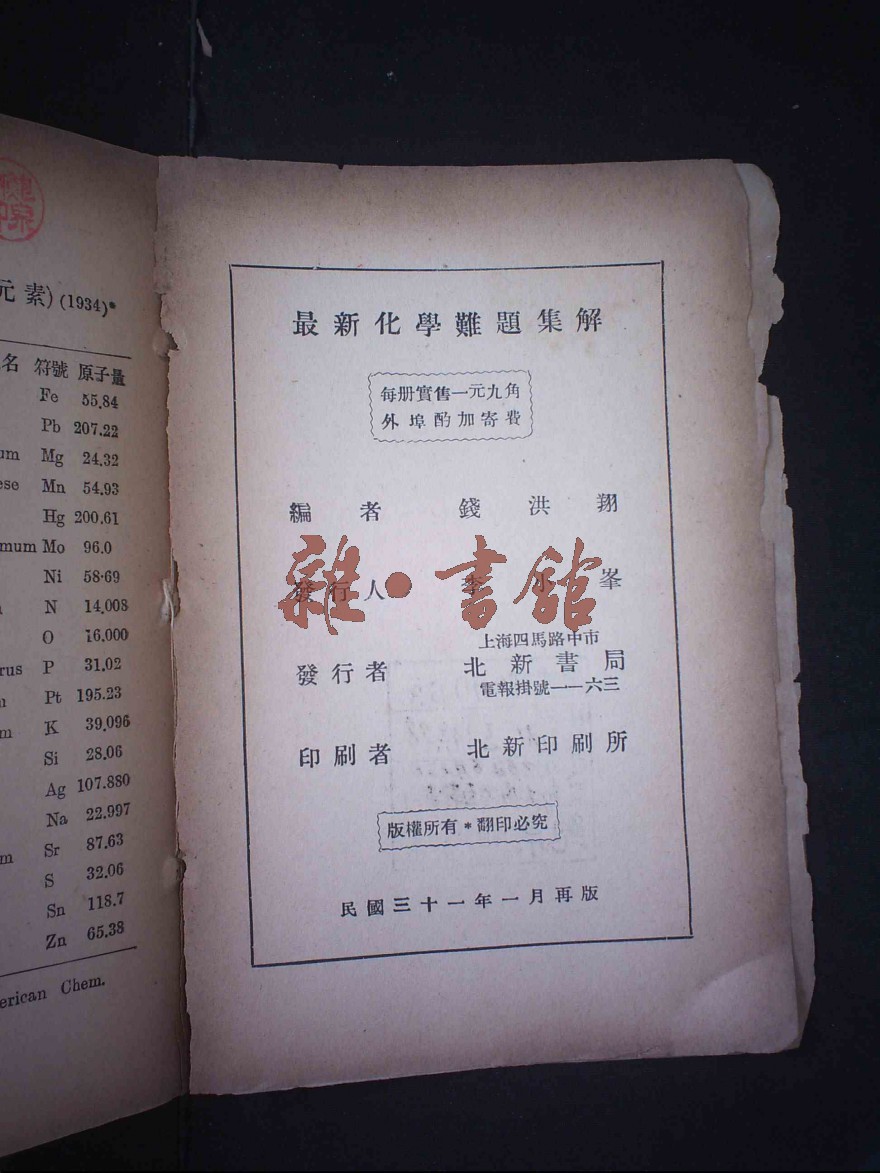 元素) (1934)*
名 符號 原子量
Fe 55.84
Pb 207.22
um Mg 24.32
ese Mn 54.93
Hg 200.61
mum Mo 96.0
Ni 58.69
N 14.008
O 16.000
rus P 31.02
m Pt 195.23
m K 39.096
Si 28.06
Ag 107.880
Na 22.997
m Sr 87.63
S 32.06
Sn 118.7
Zn 65.38
erican Chem.
最新化學難題集解
每册實售一元九角
外埠酌加寄費
編者 錢洪翔
發行人 李小峯
雜·書館
上海四馬路中市
發行者 北新書局
電報掛號一一六三
印刷者 北新印刷所
版權所有*翻印必究
民國三十一年一月再版